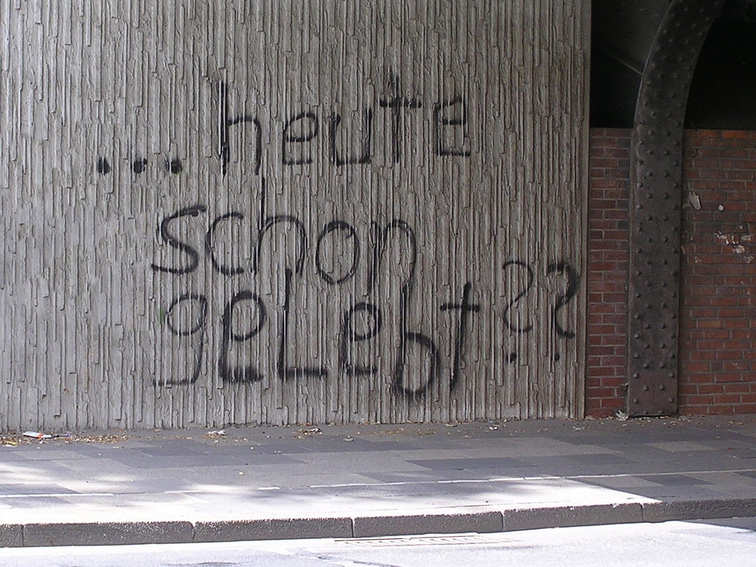 ... heute
schon
gelebt ??